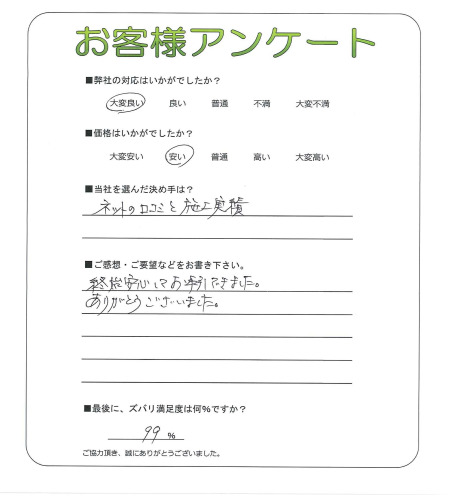 お客様アンケート
■弊社の対応はいかがでしたか？
大変良い 良い 普通 不満 大変不満
■価格はいかがでしたか？
大変安い 安い 普通 高い 大変高い
■当社を選んだ決め手は？
ネットの口コミと施工実積
■ご感想・ご要望などをお書き下さい。
終始安心してお取引できました。
ありがとうございました。
■最後に、ズバリ満足度は何％ですか？
99 ％
ご協力頂き、誠にありがとうございました。